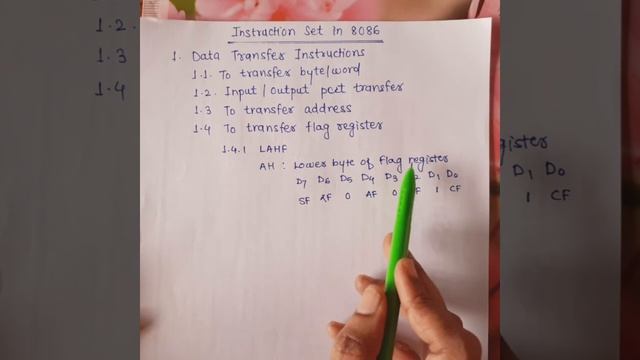 Instruction Set In 8086
1. Data Transfer Instructions
1.1. To transfer byte/word
1.2. Input/Output port transfer
1.3 To transfer address
1.4 To transfer flag register
1.4.1 LAHF
AH : Lower byte of flag register
D7 D6 D5 D4 D3 2 D1 D0
SF ZF 0 AF 0 F 1 CF
1.2.
1.3
1.4
gister
D1 D0
1 CF